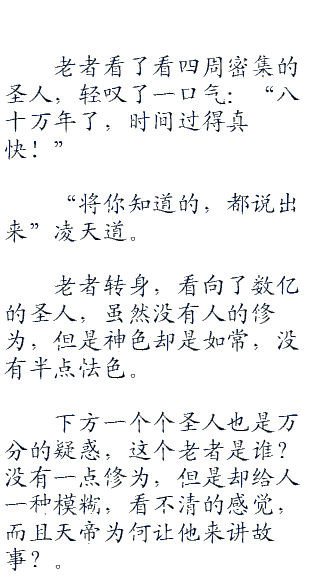 老者看了看四周密集的
圣人，轻叹了一口气：“八
十万年了，时间过得真
快！”
“将你知道的，都说出
来”凌天道。
老者转身，看向了数亿
的圣人，虽然没有人的修
为，但是神色却是如常，没
有半点怯色。
下方一个个圣人也是万
分的疑惑，这个老者是谁？
没有一点修为，但是却给人
一种模糊，看不清的感觉，
而且天帝为何让他来讲故
事？。